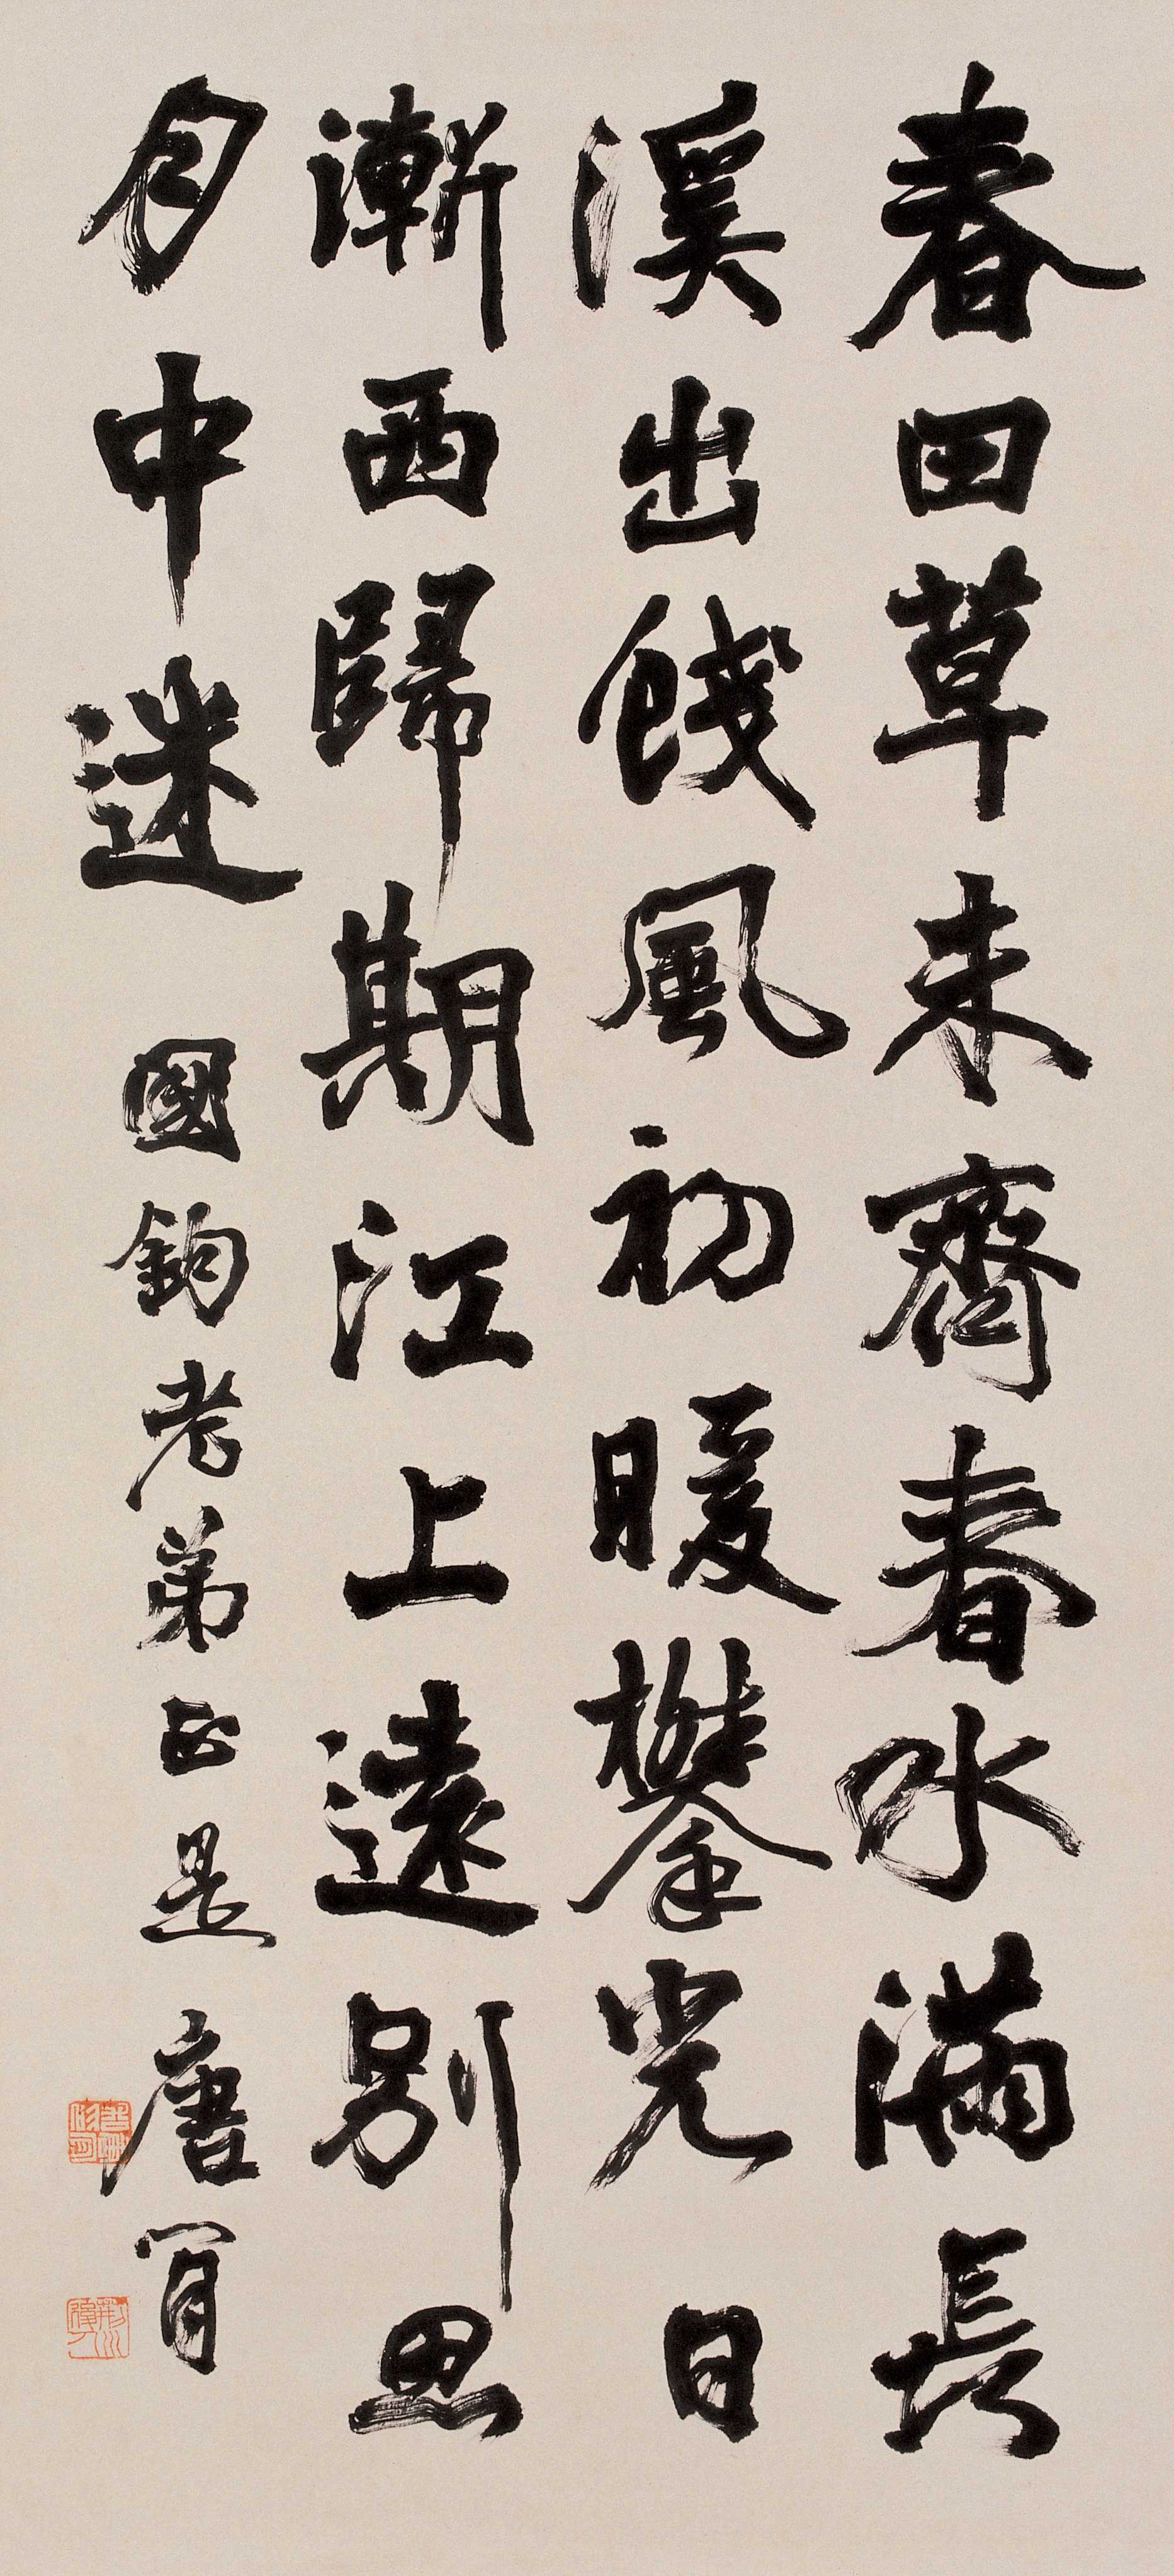 春田草未齊春水滿長
溪出餞風初暖攀光日
漸西歸期江上遠別思
月中迷 國鈞老弟正是 唐肯